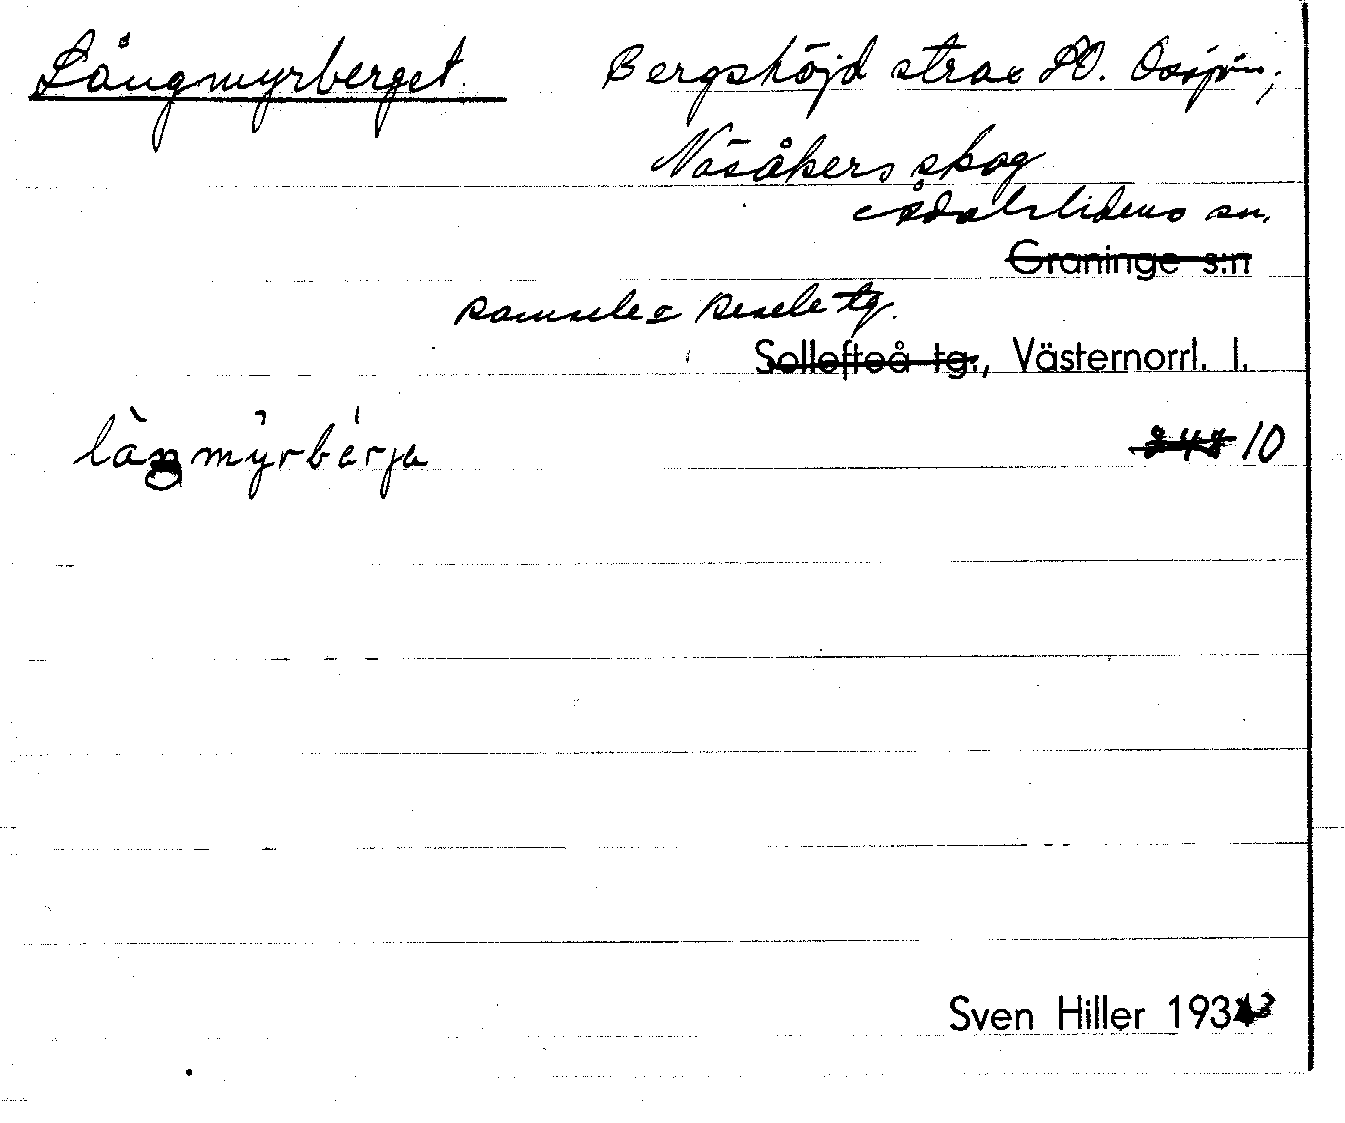 Långmyrberget Bergshöjd strax SO. Oxsjön;
Näsåkers skog
Ådalslidens sn.
Graninge s:n
Ramsele o Resele tg.
Sollefteå tg., Västernorrl. l.
lån̥mýrbérja 10
Sven Hiller 1933